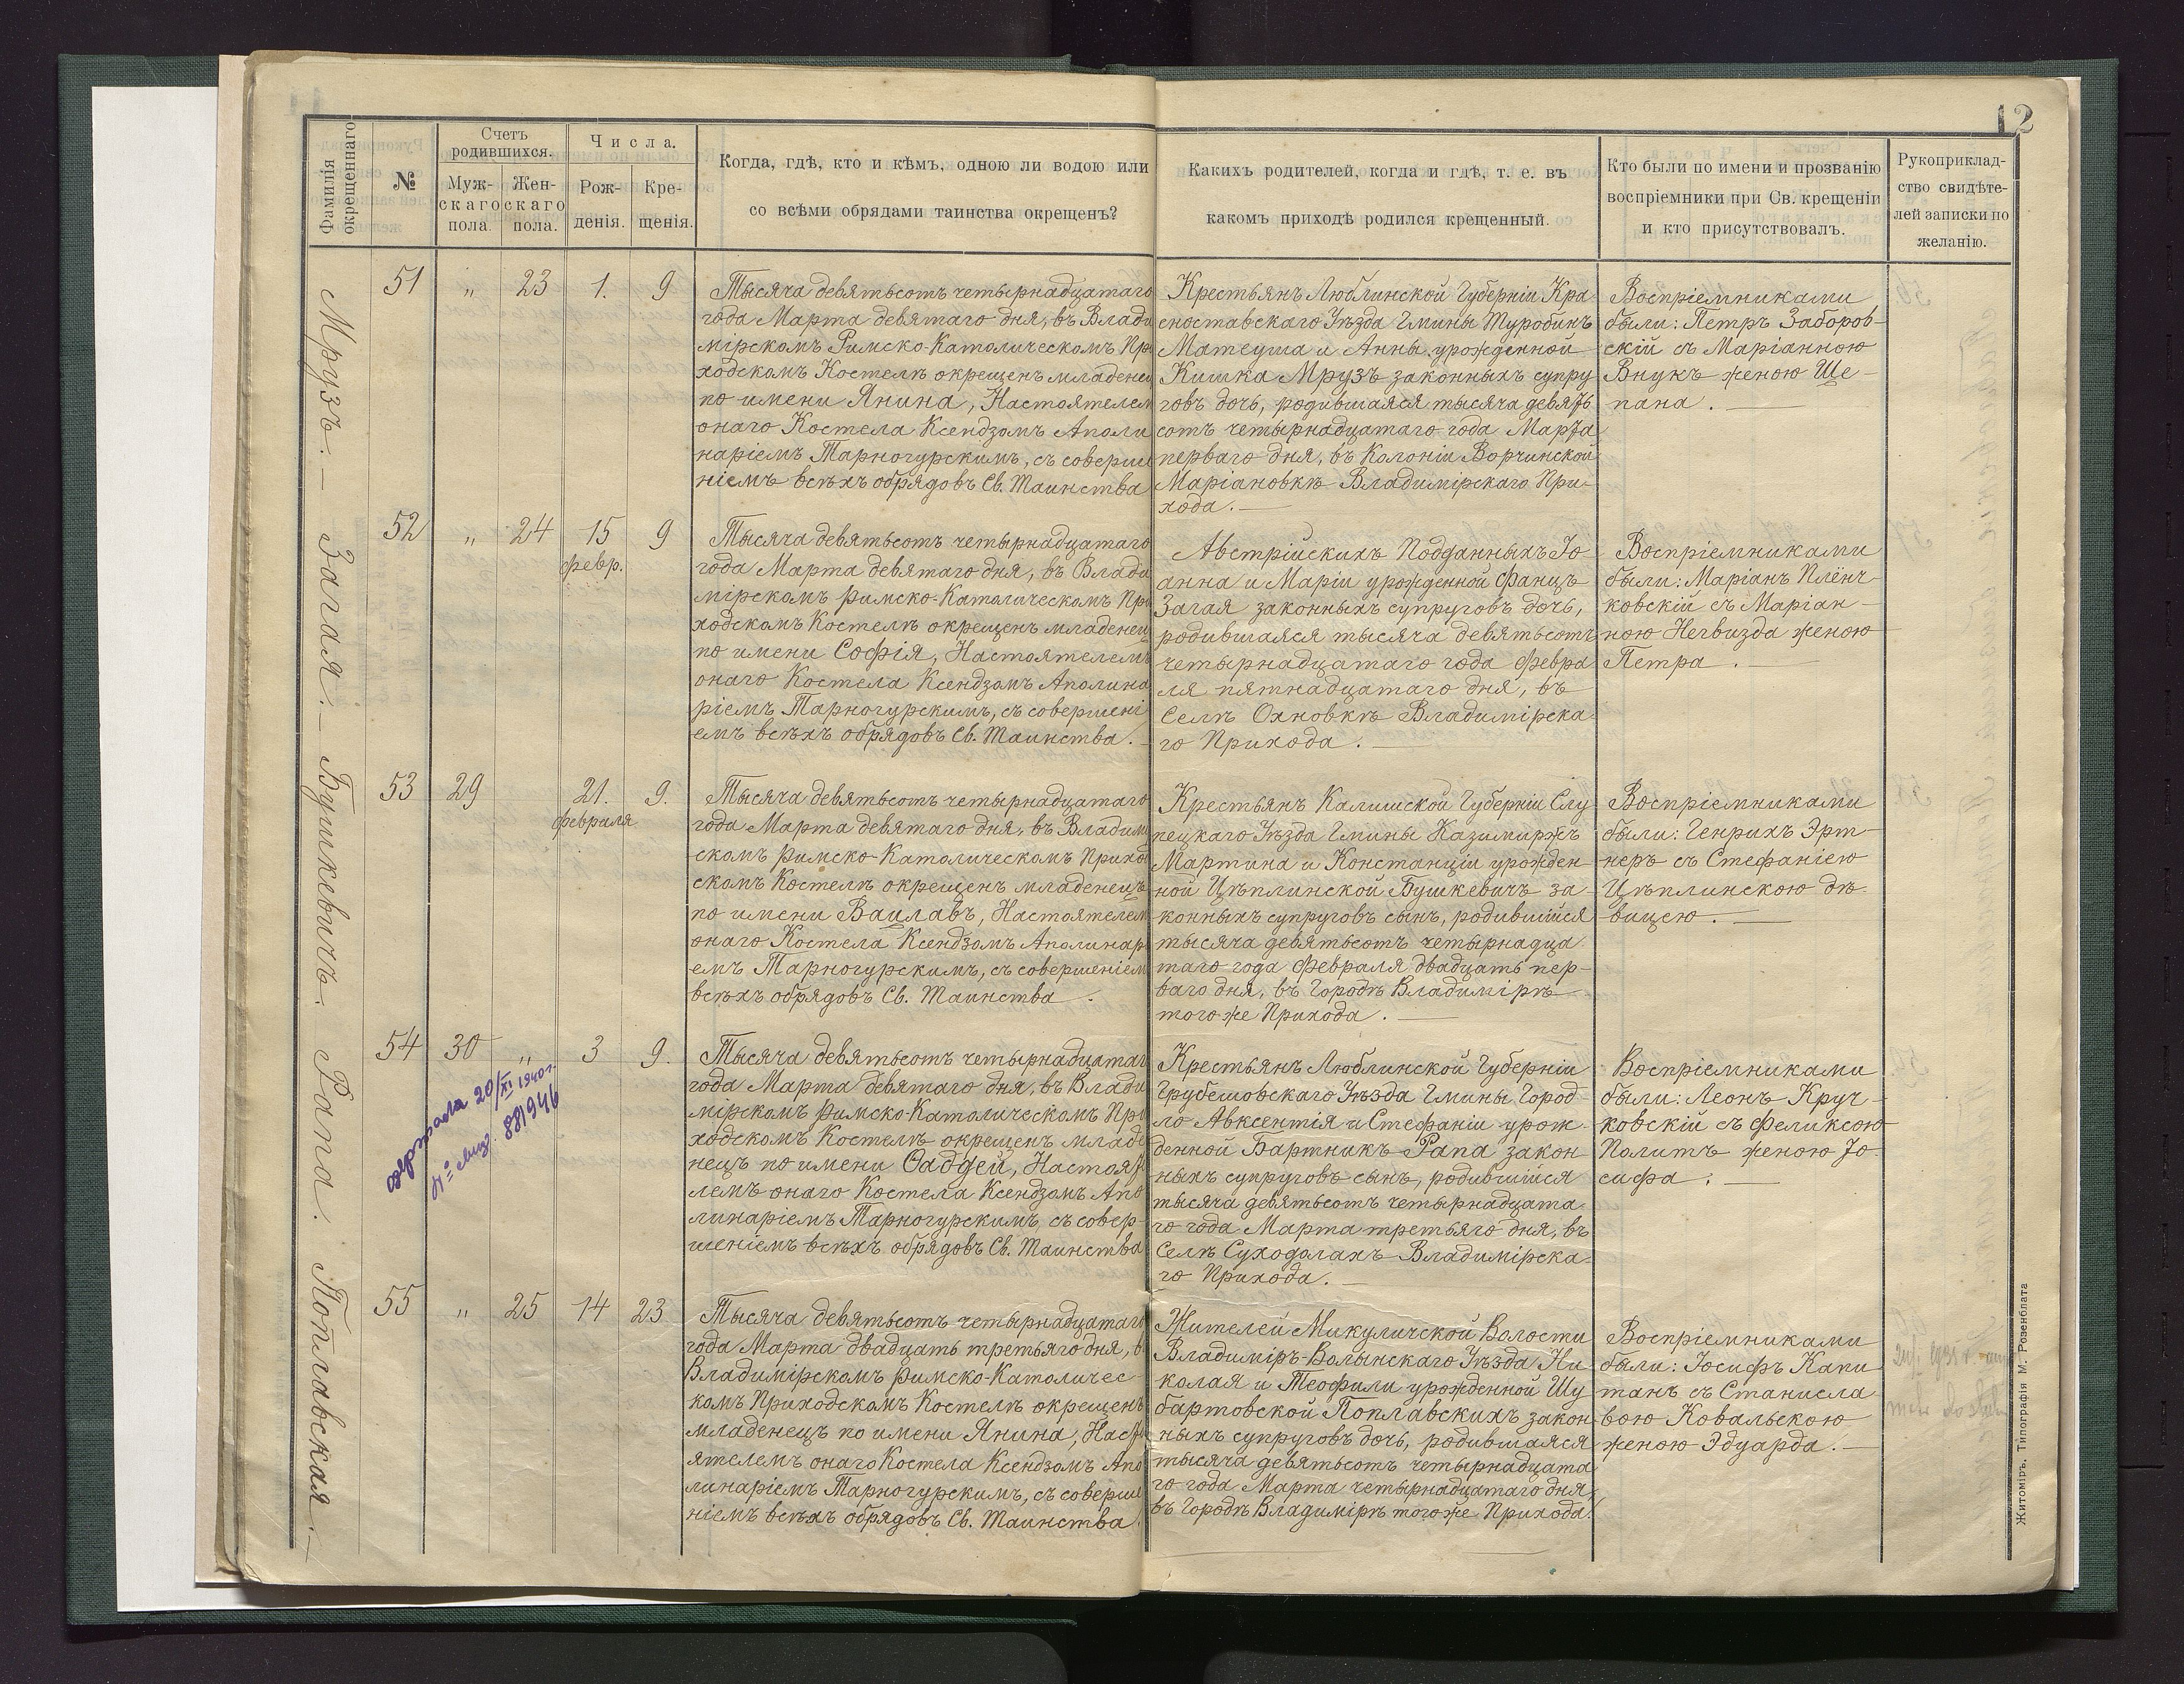 12
Фамилія окрещеннаго
№
Счетъ родившихся.
Мужскаго пола.
Женскаго пола.
Числа.
Рожденія.
Крещенія.
Когда, гдѣ, кто и кѣмъ, одною ли водою или
со всѣми обрядами таинства окрещенъ?
Какихъ родителей, когда и гдѣ, т. е. въ
какомъ приходѣ родился крещенный.
Кто были по имени и прозванію
воспріемники при Св. крещеніи
и кто присутствовалъ.
Рукоприклад-
ство свидѣте-
лей записки по
желанію.
Мрузъ. —
51 „ 23 1. 9
Тысяча девятьсотъ четырнадцатаго
года Марта девятаго дня, въ Влади
мірскомъ Римско-Католическомъ При
ходскомъ Костелѣ окрещенъ младенец
по имени Янина, Настоятелем
онаго Костела Ксендзомъ Аполи
наріемъ Тарногурскимъ, съ соверше
ніемъ всѣхъ обрядовъ Св. Таинства
Крестьянъ Люблинской Губерніи Кра
сноставскаго Уѣзда Гмины Туробинъ
Матеуша и Анны урожденной
Кишка Мрузъ законныхъ супру
говъ дочь, родившаяся тысяча девять
сотъ четырнадцатаго года Марта
перваго дня, въ Колоніи Ворчинской
Маріановкѣ Владимірскаго При-
хода. —
Воспріемниками
были: Петръ Заборов-
скій съ Маріанною
Внукъ женою Ще-
пана. —
Загая. —
52 „ 24 15 9
февр.
Тысяча девятьсотъ четырнадцатаго
года Марта девятаго дня, въ Влади
мірскомъ Римско-Католическомъ При
ходскомъ Костелѣ окрещенъ младенец
по имени Софія, Настоятелемъ
онаго Костела Ксендзомъ Аполина
ріемъ Тарногурскимъ, съ совершені
емъ всѣхъ обрядовъ Св. Таинства. —
Австрійскихъ Подданныхъ Іо
анна и Маріи урожденной Франць
Загая законныхъ супруговъ дочь,
родившаяся тысяча девятьсотъ
четырнадцатаго года Февра
ля пятнадцатаго дня, въ
Селѣ Охновкѣ Владимірска-
го Прихода. —
Воспріемниками
были: Маріанъ Плёнч-
ковскій съ Маріан-
ною Негвизда женою
Петра. —
Бушкевичъ.
53 29 21. 9.
февраля
Тысяча девятьсотъ четырнадцатаго
года Марта девятаго дня, въ Владимі
скомъ Римско-Католическомъ Приход
скомъ Костелѣ окрещенъ младенецъ
по имени Вацлавъ, Настоятелем
онаго Костела Ксендзомъ Аполинарі
емъ Тарногурскимъ, съ совершеніем
всѣхъ обрядовъ Св. Таинства.
Крестьянъ Калишской Губерніи Слу
пецкаго Уѣзда Гмины Казимиржъ
Мартина и Констанціи урожден-
ной Цѣплинской Бушкевичъ за-
конныхъ супруговъ сынъ, родившійся
тысяча девятьсотъ четырнадца
таго года Февраля двадцать пер-
ваго дня, въ Городѣ Владимірѣ
того же Прихода. —
Воспріемниками
были: Генрихъ Эрт-
неръ съ Стефаніею
Цѣплинскою дѣ-
вицею. —
Рапа.
54 30 „ 3 9.
одержала 20/XI 1940 г.
№ свид. 881946
Тысяча девятьсотъ четырнадцатаг
года Марта девятаго дня, въ Влади
мірскомъ Римско-Католическомъ При
ходскомъ Костелѣ окрещенъ младе
нецъ по имени Фаддей, Настоят
лемъ онаго Костела Ксендзомъ Апо
линаріемъ Тарногурскимъ, съ совер-
шеніемъ всѣхъ обрядовъ Св. Таинства
Крестьянъ Люблинской Губерніи
Грубешовскаго Уѣзда Гмины Город-
ло Авксентія и Стефаніи урож-
денной Бартникъ Рапа закон-
ныхъ супруговъ сынъ, родившійся
тысяча девятьсотъ четырнадцата
го года Марта третьяго дня, въ
Селѣ Суходолахъ Владимірска-
го Прихода. —
Воспріемниками
были: Леонъ Круч-
ковскій съ Феликсою
Политъ женою Іо-
сифа. —
Поплавская. —
55 „ 25 14 23
Тысяча девятьсотъ четырнадцатаго
года Марта двадцать третьяго дня, в
Владимірскомъ Римско-Католичес-
комъ Приходскомъ Костелѣ окрещенъ
младенецъ по имени Янина, Насто
ятелемъ онаго Костела Ксендзомъ Апо
линаріемъ Тарногурскимъ, съ соверше
ніемъ всѣхъ обрядовъ Св. Таинства.
Жителей Микуличской Волости
Владиміръ-Волынскаго Уѣзда Ни
колая и Теофили урожденной Шу
бартовской Поплавскихъ закон
ныхъ супруговъ дочь, родившаяся
тысяча девятьсотъ четырнадцата
го года Марта четырнадцатаго дня,
въ Городѣ Владимірѣ того же Прихода.
Воспріемниками
были: Іосифъ Капи
танъ съ Станисла
вою Ковальскою
женою Эдуарда. —
Житоміръ, Типографія М. Розенблата